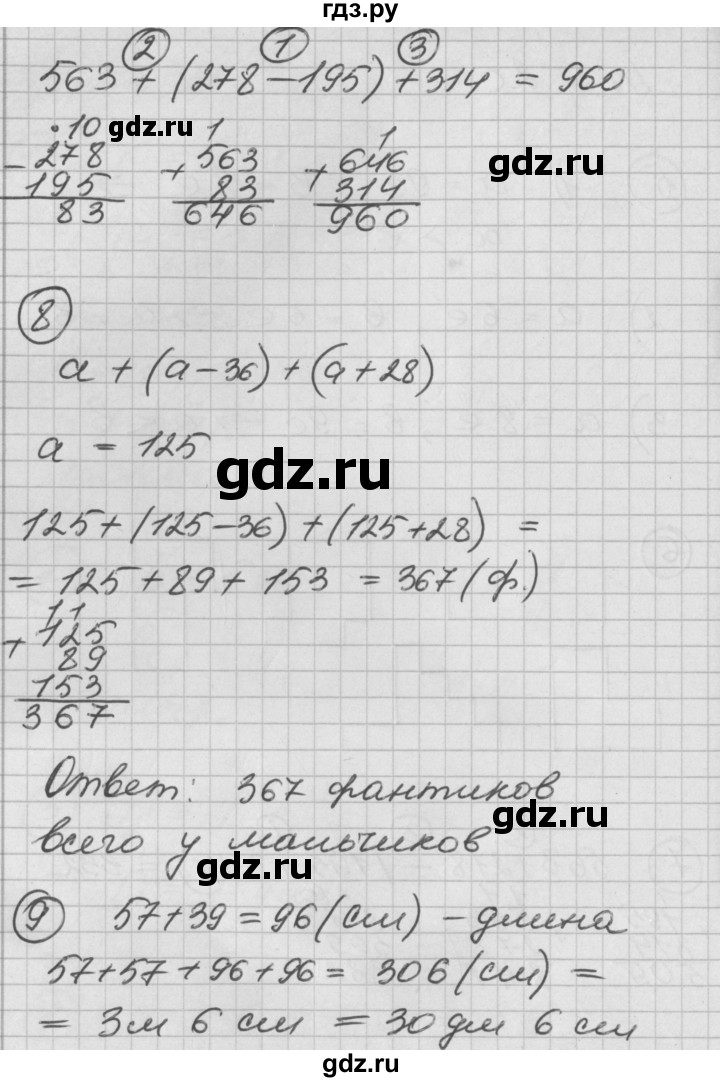 гдз.ру
2 1 3
563 + (278 – 195) + 314 = 960
·10 gdz.ru 1 1
- 278 + 563 + 646 gdz.ru
195 83 314
83 646 960
8
a + (a – 36) + (a + 28)
a = 125
gdz.ru
125 + (125 – 36) + (125 + 28) =
= 125 + 89 + 153 = 367 (ф.)
11
+ 125
89
153
367
Ответ: 367 фантиков
gdz.ru
всего у мальчиков
gdz.ru
9 57 + 39 = 96 (см) – длина
57 + 57 + 96 + 96 = 306 (см) =
= 3 м 6 см = 30 дм 6 см
gdz.ru